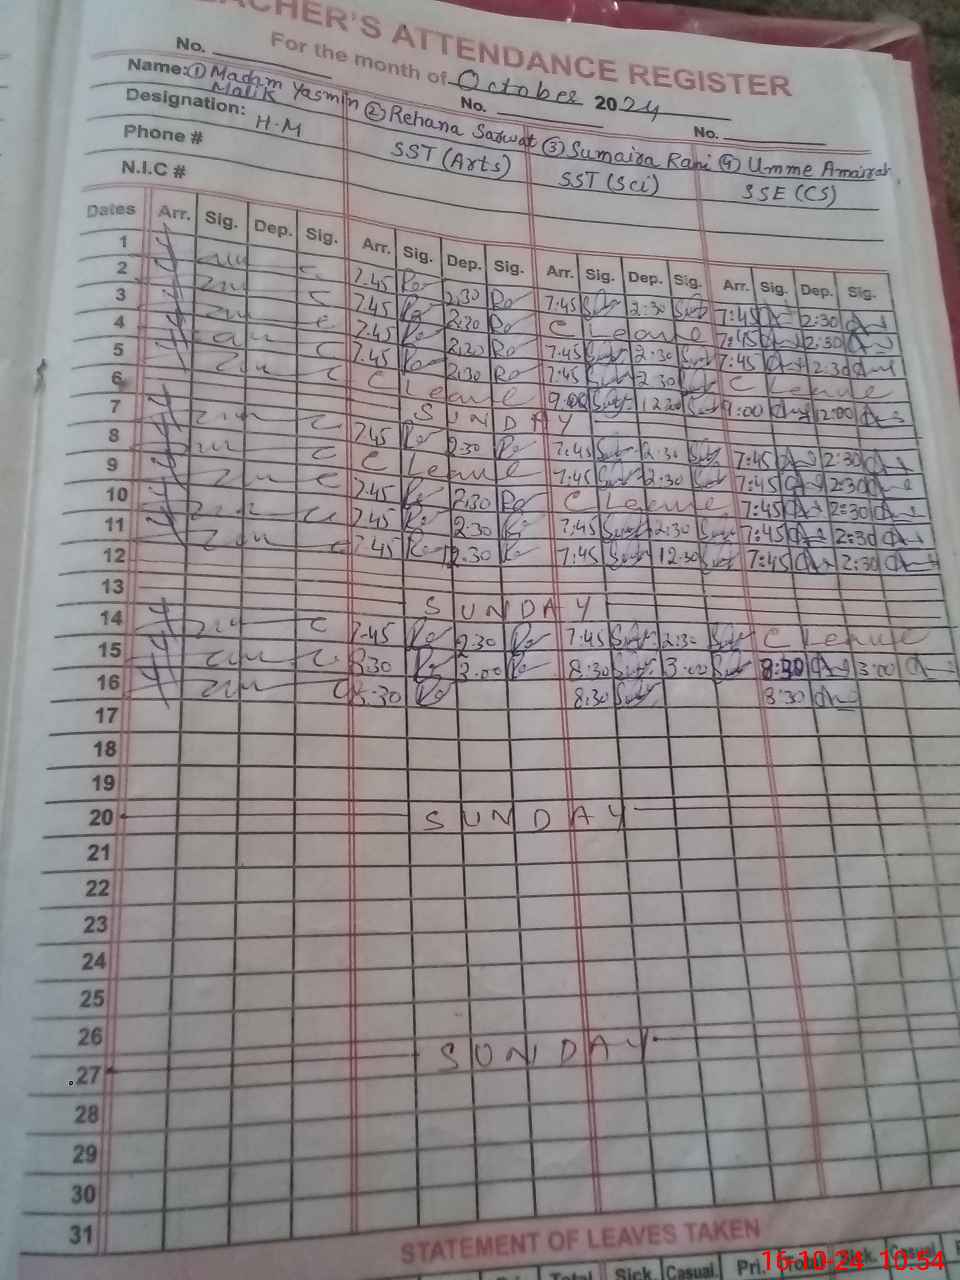 TEACHER'S ATTENDANCE REGISTER
For the month of October 2024
No. No. No.
Name: ① Madam Yasmin Malik ② Rehana Sarwat ③ Sumaira Rani ④ Umme Amairah
Designation: H.M SST (Arts) SST (Sci) SSE (CS)
Phone #
N.I.C #
Dates Arr. Sig. Dep. Sig. Arr. Sig. Dep. Sig. Arr. Sig. Dep. Sig. Arr. Sig. Dep. Sig.
1 7.45 2.30 7:45 2:30 7:45 2:30
2 7.45 2.30 C Leave 7:45 2:30
3 7.45 2.30 7:45 2:30 7:45 2:30
4 7.45 2.30 7:45 2:30 C Leave
5 C Leave 9:00 12:00 9:00 12:00
6 SUNDAY
7 7.45 2.30 7:45 2:30 7:45 2:30
8 C Leave 7:45 2:30 7:45 2:30
9 7.45 2.30 C Leave 7:45 2:30
10 7.45 2.30 7:45 2:30 7:45 2:30
11 7.45 12.30 7:45 12:30 7:45 2:30
12
13 SUNDAY
14 7.45 2.30 7:45 2:30 C Leave
15 8.30 3.00 8:30 3:00 8:30 3:00
16 8.30 8:30 8:30
17
18
19
20 SUNDAY
21
22
23
24
25
26
27 SUNDAY
28
29
30
31
STATEMENT OF LEAVES TAKEN
Total Sick. Casual. Pri. Total Sick. Casual.
16-10-24 10:54